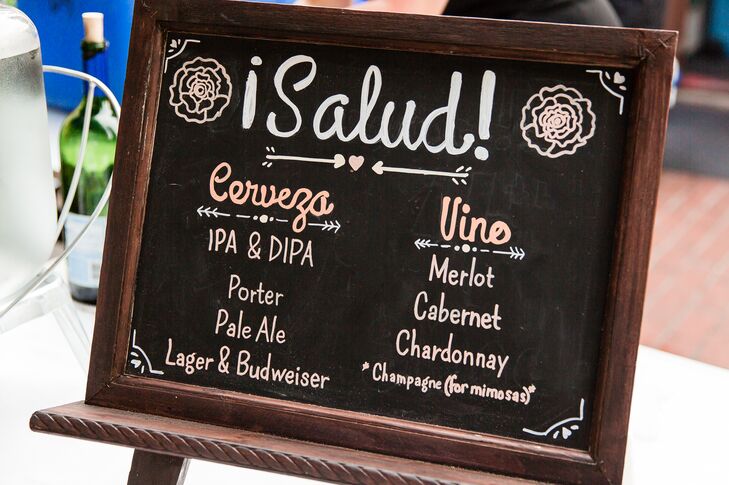 ¡Salud!
Cerveza
IPA & DIPA
Porter
Pale Ale
Lager & Budweiser
Vino
Merlot
Cabernet
Chardonnay
*Champagne (for mimosas)*